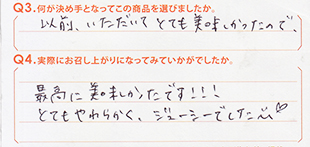 Q3.何が決め手となってこの商品を選びましたか。
以前、いただいてとても美味しかったので、
Q4.実際にお召し上がりになってみていかがでしたか。
最高に美味しかたです!!!
とてもやわらかく、ジューシーでした♡